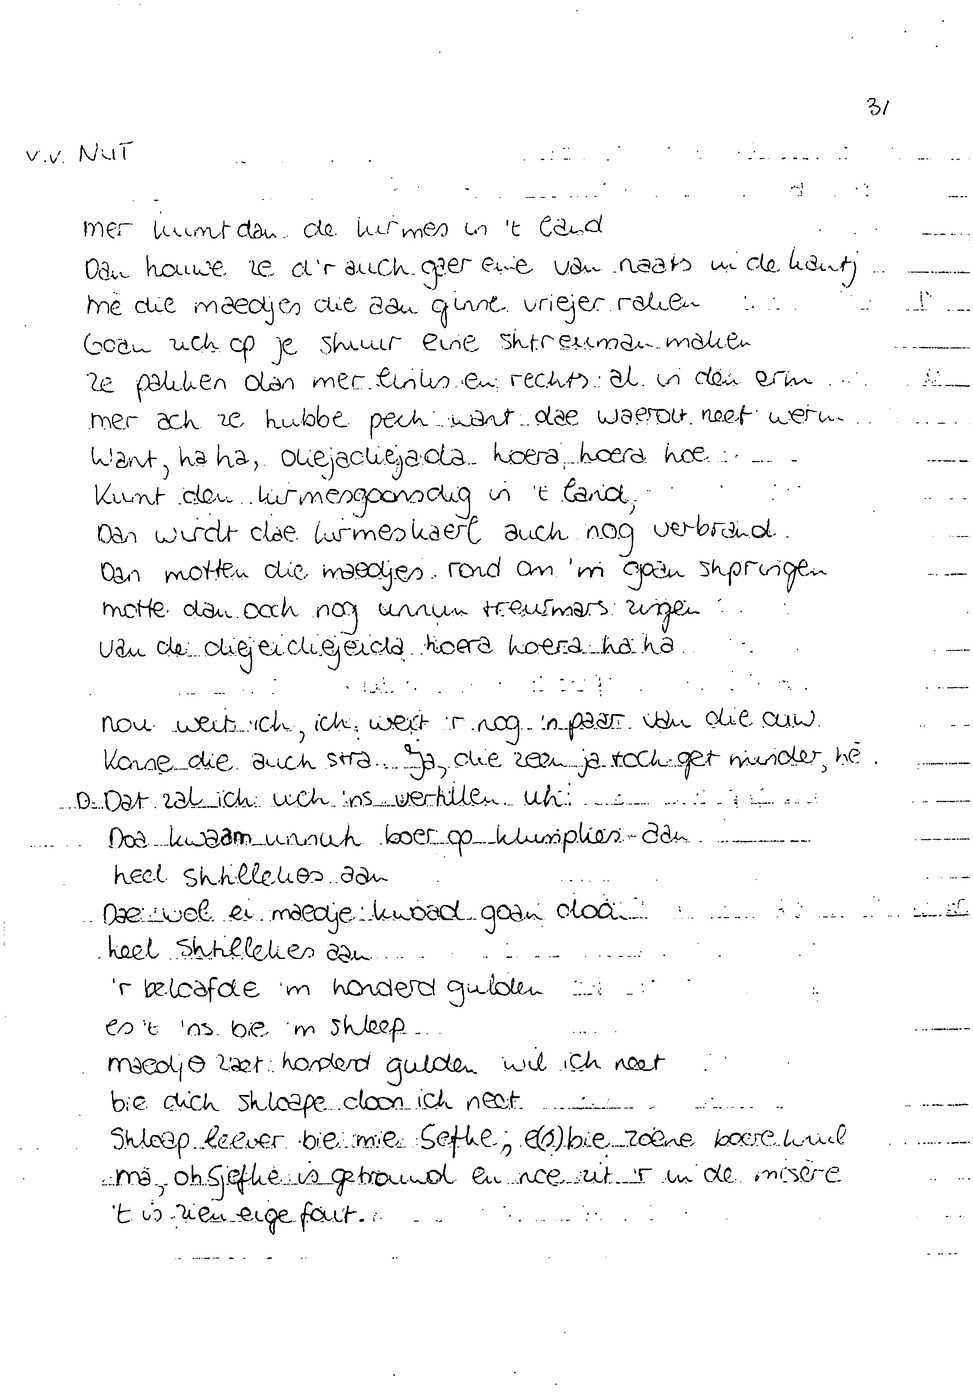 31
v.v. NUT
mer kumt dan de kirmes in 't land
Dan houwe ze d'r auch gaer eine van naats in de hantj
mè die maedjes die aan ginne vriejer raken
Goan zich op je shuur eine shtreuman maken
ze pakken dan mer links en rechts al in den erm
mer ach ze hubbe pech want dae waerdt neet werm
Want, ha ha, oliejadiejada hoera hoera hoe
Kumt den kirmesgoonsdig in 't land,
Dan wirdt dae kirmeskaerl auch nog verbrand.
Dan motten die maedjes rond om 'm goan shpringen
motte dan ooch nog unnun treurmars zingen
van de diejeidiejeida hoera hoera ha ha
nou weit ich, ich weit 'r nog 'n paar van die ouw.
Konne die auch stra.. Ja, die zeen ja toch get minder, hè.
D. Dat zal ich uch 'ns vertillen uh:
Doa kwaam unnuh boer op klumpkes aan
heel shtillekes aan
Dae wol ei maedje kwoad goan doa
heel shtillekes aan
'r beloafde 'm honderd gulden
es 't 'ns bie 'm shleep
maedje zaet honderd gulden wil ich neet
bie dich shloape doon ich neet
Shloap leever bie mie Sefke, e(s) bie zoene boerekuul
mä, oh Sjefke is getrouwd en noe zit 'r in de misère
't is zien eige fout.